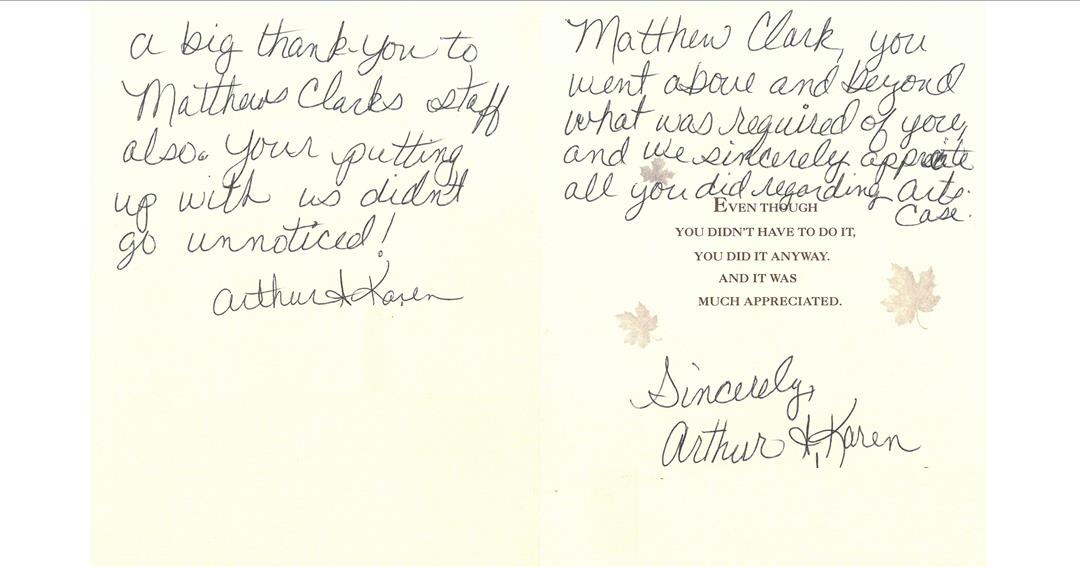 a big thank-you to
Matthews Clarks staff
also. Your putting
up with us didn't
go unnoticed!
Arthur & Karen
Matthew Clark, you
went above and beyond
what was required of you,
and we sincerely appreciate
all you did regarding Arts.
case.
EVEN THOUGH
YOU DIDN'T HAVE TO DO IT,
YOU DID IT ANYWAY.
AND IT WAS
MUCH APPRECIATED.
Sincerely,
Arthur & Karen